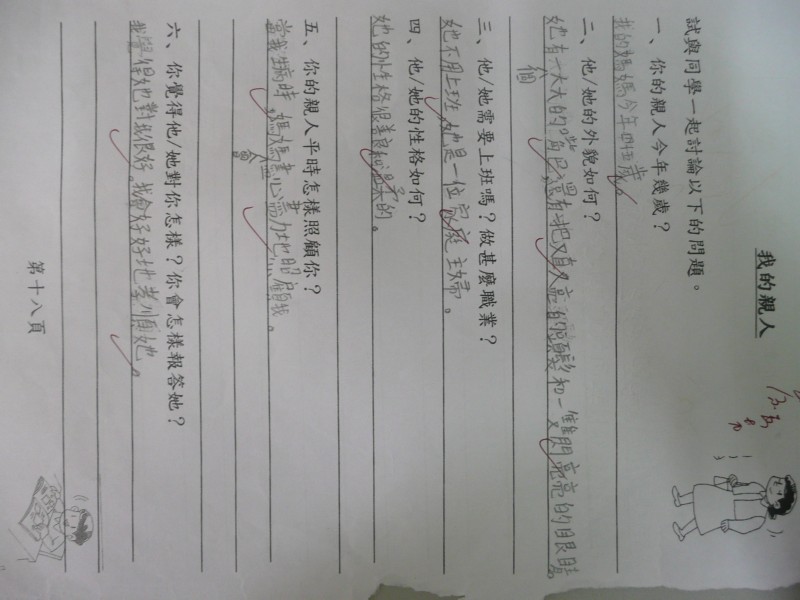 我的親人
試與同學一起討論以下的問題。
一、你的親人今年幾歲？
我的媽媽今年四十五歲
二、他/她的外貌如何？
她有一大大的嘴巴，還有一把又直又亮的頭髮和一雙閃亮亮的眼睛
個
三、他/她需要上班嗎？做甚麼職業？
她不用上班，她是一位家庭主婦。
四、他/她的性格如何？
她的性格很善良和温柔的。
五、你的親人平時怎樣照顧你？
當我生病時，媽媽盡心盡力地照顧我。
會
六、你覺得他/她對你怎樣？你會怎樣報答她？
我覺得她對我很好。我會好好地孝順她。
第十八頁